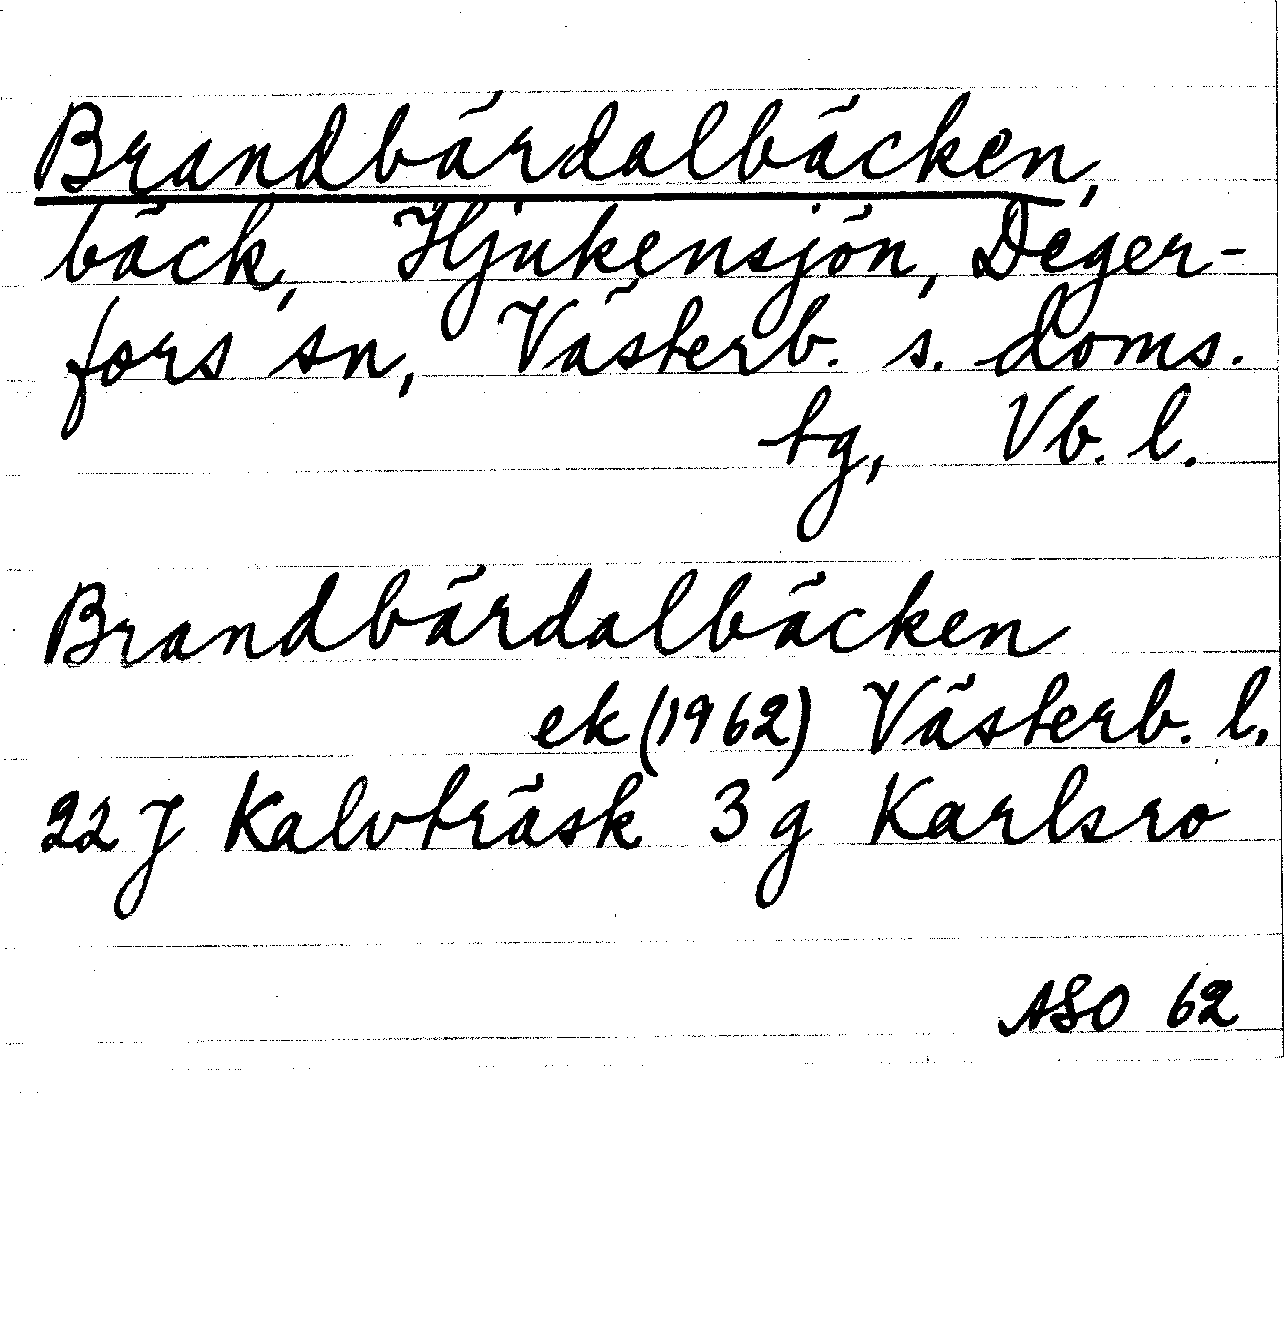 Brandbärdalbäcken,
bäck, Hjukensjön, Deger-
fors sn, Västerb. s. doms.
tg, Vb. l.
Brandbärdalbäcken
ek (1962) Västerb. l.
22 J Kalvträsk 3 g Karlsro
ASO 62